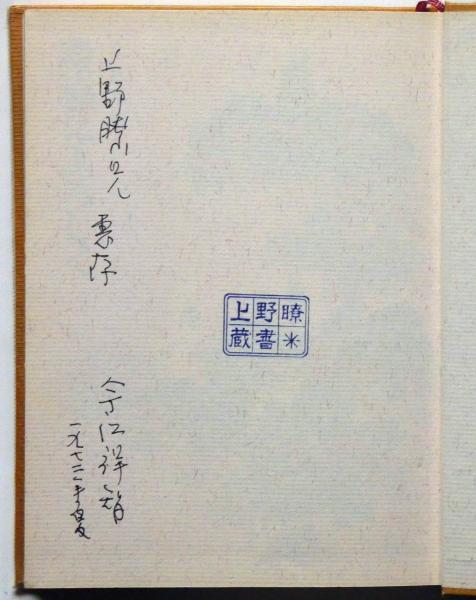 上野瞭兄
恵存
上野瞭
蔵書米
今江祥智
一九七二年夏